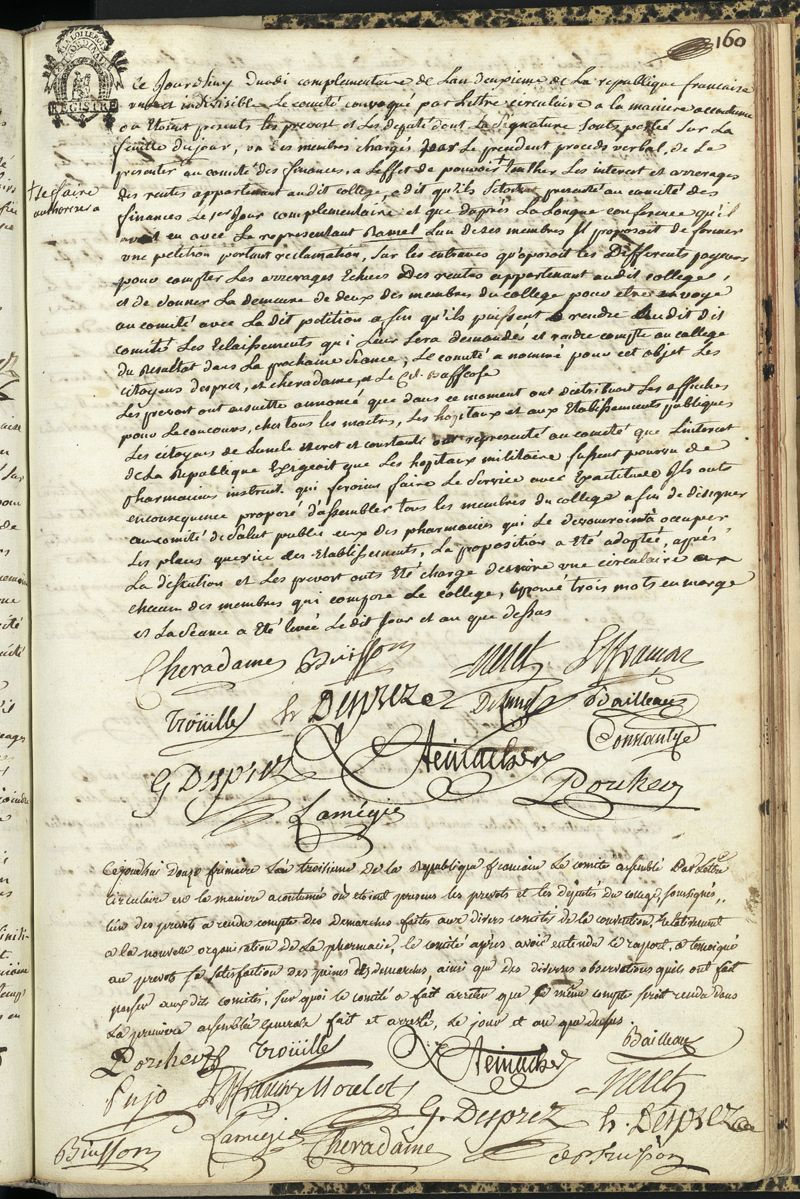 160
LA LOI LE ROI
REGISTRE
Ce Jourdhuy Duodi complementaire de Lan deuxieme de La republique francaise
une et indivisible Le comité convoqué par Lettre circulaire a la maniere accoutumé
ou Etoint presents les prevost et Les deputé dont La Signature sont portée Sur La
feuille du jour, un des membres chargés par Le precedent procés verbal, de Se
presenter au comité des finances, a Leffet de pouvoir + toucher Les interest et arrerages
des rentes appartenant audit college, a dit qu'ils Setoit presenté au comité des
+ se faire
authoriser a
finances Le 1er Jour complementaire et que d'aprés La Longue conference qu'il
avoit eu avec Le representant Ramel Lun de ses membres Il proposoit de former
une petition portant reclamation, Sur les entraves qu'oposoit les Differents payeurs
pour compter Les arrerages Echues Des rentes appartenant audit college,
et de donner La demeure de deux des membres du college pour etre envoyé
au comité avec La dit petition afin qu'ils puissent rendre audit dit
comité Les Eclaissements qui Leur Sera demandés et rendre compte au college
du Resultat dans La prochaine Seance; Le comité a nommé pour cet objet Les
citoyens desprez, et cheradame, Le Cit.
Les prevost ont ensuitte annoncé que dans ce moment ont distribuoit Les affiches
pour Le concours, chez tous les maitres, Les hopitaux et aux Etablissements publiques
Les citoyens de Lunel neret et constanté ont representé au comité que Linteret
de La Republique Exigeoit que Les hopitaux militaire fussent pourvu de
pharmaciens instruit qui feroient faire Le Service avec Exactitude Ils onts
enconsequence proposé d'assembler tous les membres du college afin de designer
au comité de Salut public ceux des pharmaciens qui Se devoueroint a occuper
Les places que vice des Etablissements, La proposition a Eté adoptée, aprés
La discution et Les prevost onts Eté chargé decrire une circulaire a
chacun des membres qui compose Le college, aprouvé trois mots en marge
et La Seance a Eté levée Le dit Jour et an que dessus
Cheradame Buisson Neret
Trouille h Desprez Delunel Bailleau
Steinacher Constantye
G Desprez Porcher
Lamégie
Cejourdhui douze frimaire L'an troisieme De La Republique francaise Le comité assemblé Par Lettre
circulaire en la maniere acoutumée ou etoient presens les prevots et les deputés du college soussignés,
lun des prevots a rendu compte des Demarches faites aux divers comités de la convention, relativement
a la nouvelle organisation de La pharmacie, le comité apres avoir entendu le raport, a temoigné
au prevots sa satisfaction des peines et demarches, ainsi que des diverses observations quils ont fait
passer aux dit comités, sur quoi le comité a fait arreter que le même compte seroit rendu dans
La premiere assemblée generale fait et arresté, Le jour et an que dessus.
Porcher Trouille Steinacher Bailleau
Pujo Morelot Neret
G. Desprez h. Desprez
Buisson Lamégie Cheradame